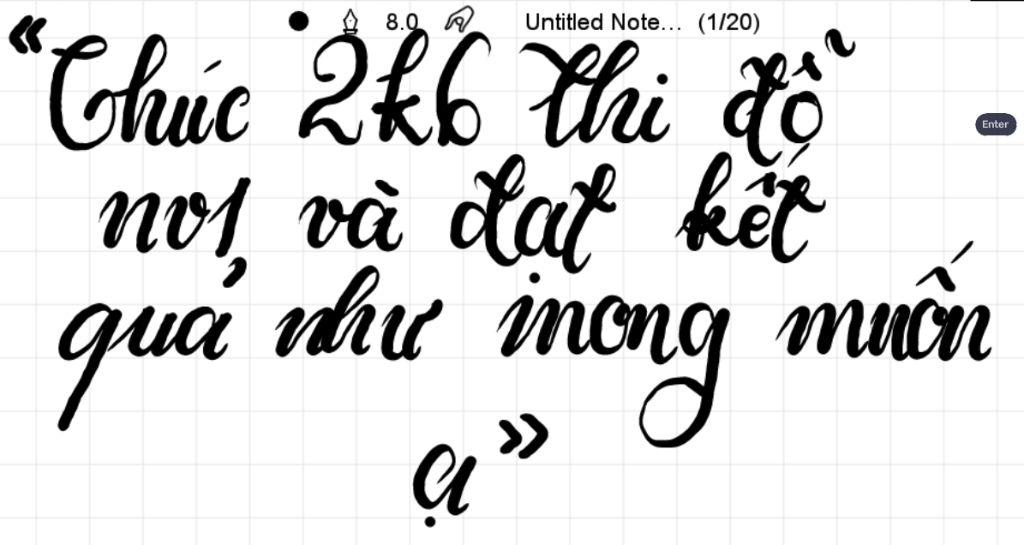 8.0 Untitled Note... (1/20)
"Chúc 2k6 thi đỗ
Enter
nv1 và đạt kết
quả như mong muốn
ạ"